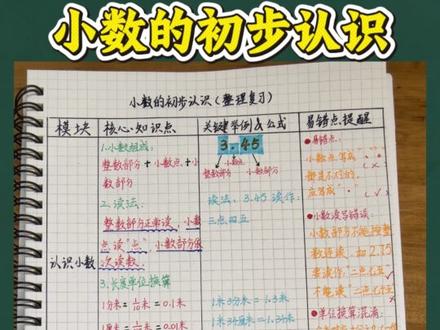 小数的初步认识
小数的初步认识(整理复习)
模块 核心知识点 关键举例&公式 易错点提醒
认识小数
1.小数组成:
整数部分+小数点+小
数部分
2.读法:
整数部分正常读,小数
点读“点”,小数部分依
次读数。
3.长度单位换算
1分米=1/10米=0.1米
1厘米=1/100米=0.01米
3.45
整数部分 小数点 小数部分
读法:3.45读作:
三点四五
1米3分米=1.3米
1米34厘米=1.34米
●易错点:
小数点写成
都是不行的,
应写成
●小数读写错误:
小数部分不能按整
数连读,如2.75
要读作“二点七五”
不能读“二点七十五
●单位换算混淆: